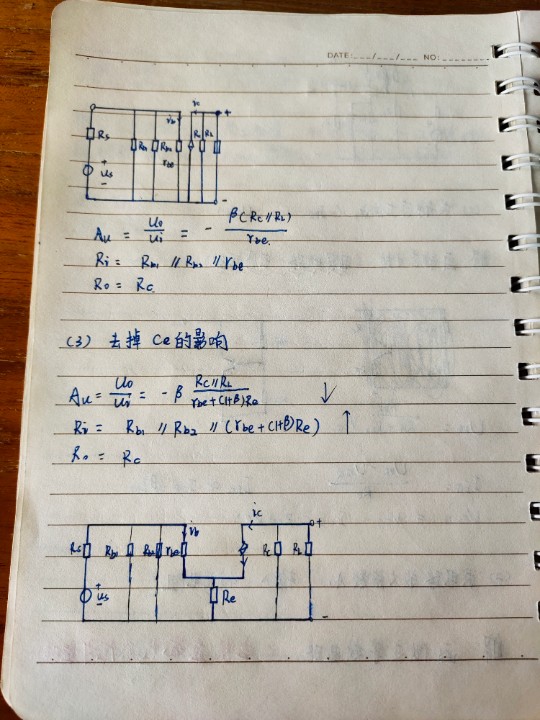 DATE:___/___/___ NO:________
ic
+
ib
Rs
Rb1
Rb2
rbe
Rc
RL
+
us
-
-
Au = uo/ui = - β(Rc//RL)/rbe.
Ri = Rb1 // Rb2 // rbe
Ro = Rc
(3) 去掉 Ce 的影响
Au = uo/ui = -β Rc//RL/rbe+(1+β)Re ↓
Ri = Rb1 // Rb2 // (rbe+(1+β)Re) ↑
Ro = Rc
ic
+
ib
Rs
Rb1
Rb2
rbe
Rc
RL
+
us
-
Re
-